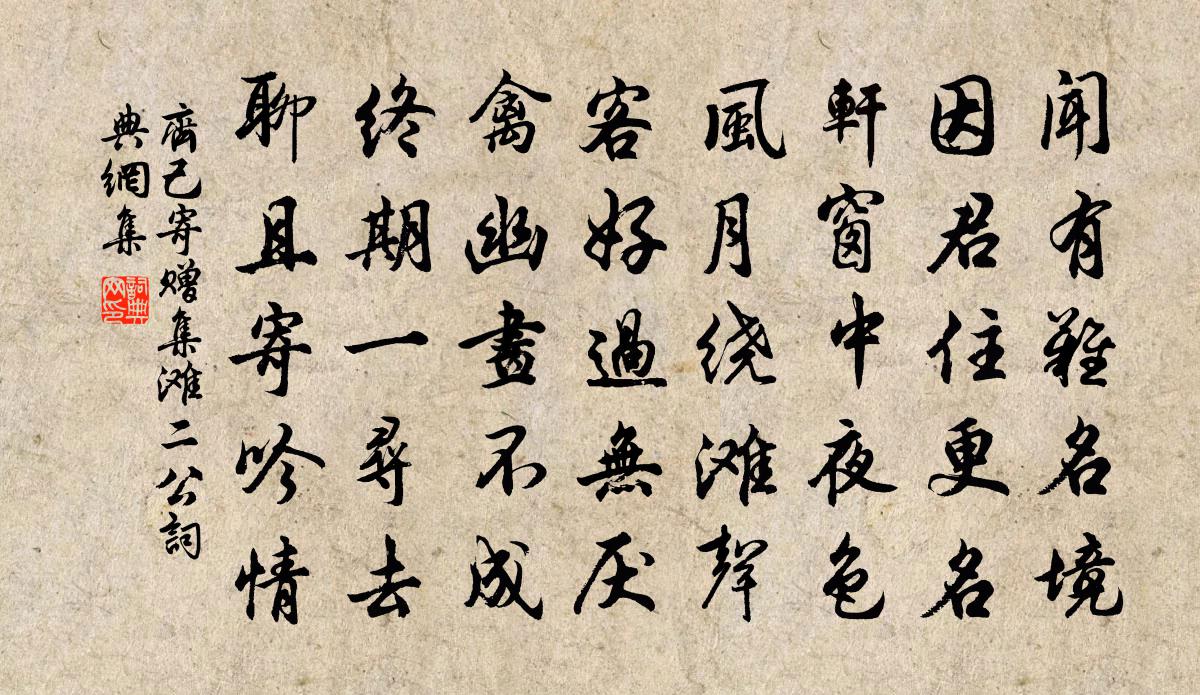 聞有難名境
因君住更名
軒窗中夜色
風月绕滩聲
客好過無厌
禽幽畫不成
終期一尋去
聊且寄吟情
齊己寄赠集滩二公詞
典網集
詞典网印